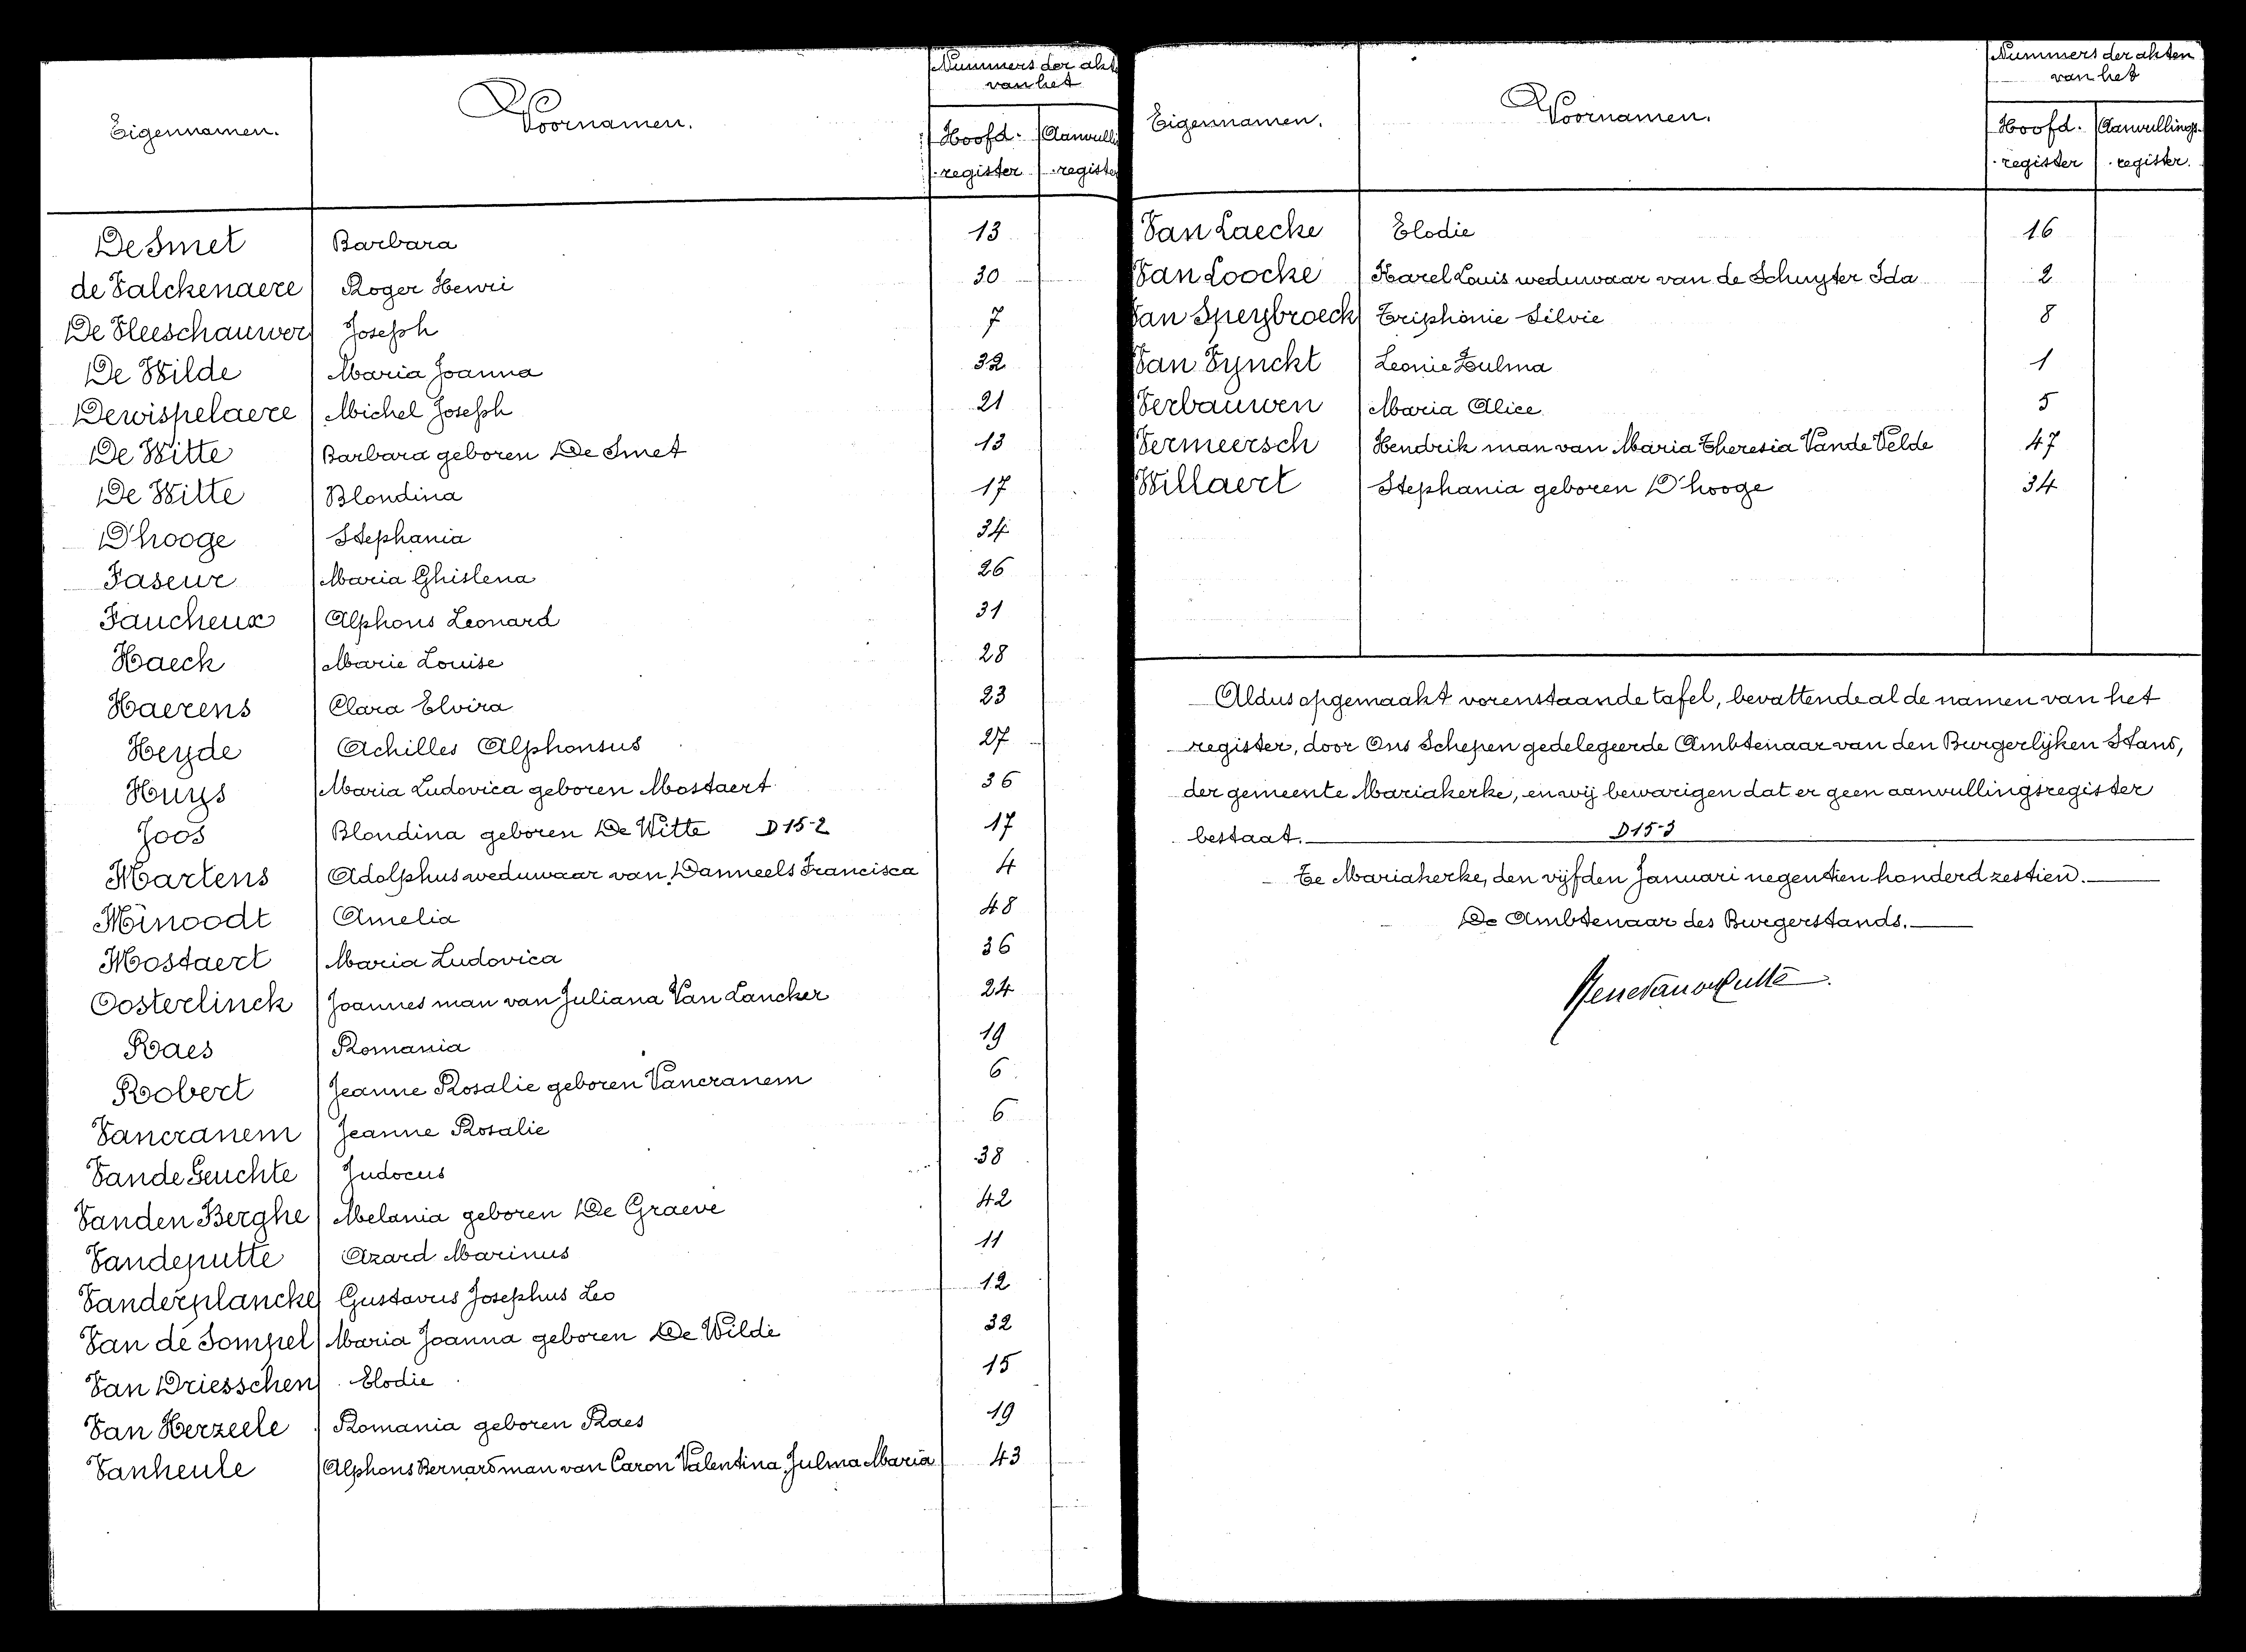 Eigennamen. Voornamen. Nummers der akt
van het
Hoofd- Aanvulli
-register -registe
De Smet Barbara 13
de Valckenaere Roger Henri 30
De Vleeschauwer Joseph 7
De Wilde Maria Joanna 32
Dewispelaere Michel Joseph 21
De Witte Barbara geboren De Smet 13
De Witte Blondina 17
D'hooge Stephania 34
Faseur Maria Ghislena 26
Faucheux Alphons Leonard 31
Haeck Marie Louise 28
Haerens Clara Elvira 23
Heyde Achilles Alphonsus 27
Huys Maria Ludovica geboren Mostaert 36
Joos Blondina geboren De Witte D15-2 17
Martens Adolphus weduwaar van Danneels Francisca 4
Minoodt Amelia 48
Mostaert Maria Ludovica 36
Oosterlinck Joannes man van Juliana Van Lancker 24
Raes Romania 19
Robert Jeanne Rosalie geboren Vancranem 6
Vancranem Jeanne Rosalie 6
Vande Geuchte Judocus 38
Vanden Berghe Melania geboren De Graeve 42
Vandeputte Azard Marinus 11
Vanderplancke Gustavus Josephus Leo 12
Van de Sompel Maria Joanna geboren De Wilde 32
Van Driesschen Elodie 15
Van Herzeele Romania geboren Raes 19
Vanheule Alphons Bernard man van Caron Valentina Julma Maria 43
Eigennamen. Voornamen. Nummers der akten
van het
Hoofd- Aanvullings-
-register -register.
Van Laecke Elodie 16
Van Loocke Karel Louis weduwaar van de Schuyter Ida 2
Van Speybroeck Triphonie Silvie 8
Van Vynckt Leonie Zulma 1
Verbauwen Maria Alice 5
Vermeersch Hendrik man van Maria Theresia Vande Velde 47
Willaert Stephania geboren D'hooge 34
Aldus opgemaakt vorenstaande tafel, bevattende al de namen van het
register, door Ons Schepen gedelegeerde Ambtenaar van den Burgerlijken Stand,
der gemeente Mariakerke, en wij bewarigen dat er geen aanvullingsregister
bestaat. D15-3
Te Mariakerke, den vijfden Januari negentien honderd zestien.
De Ambtenaar des Burgerstands.